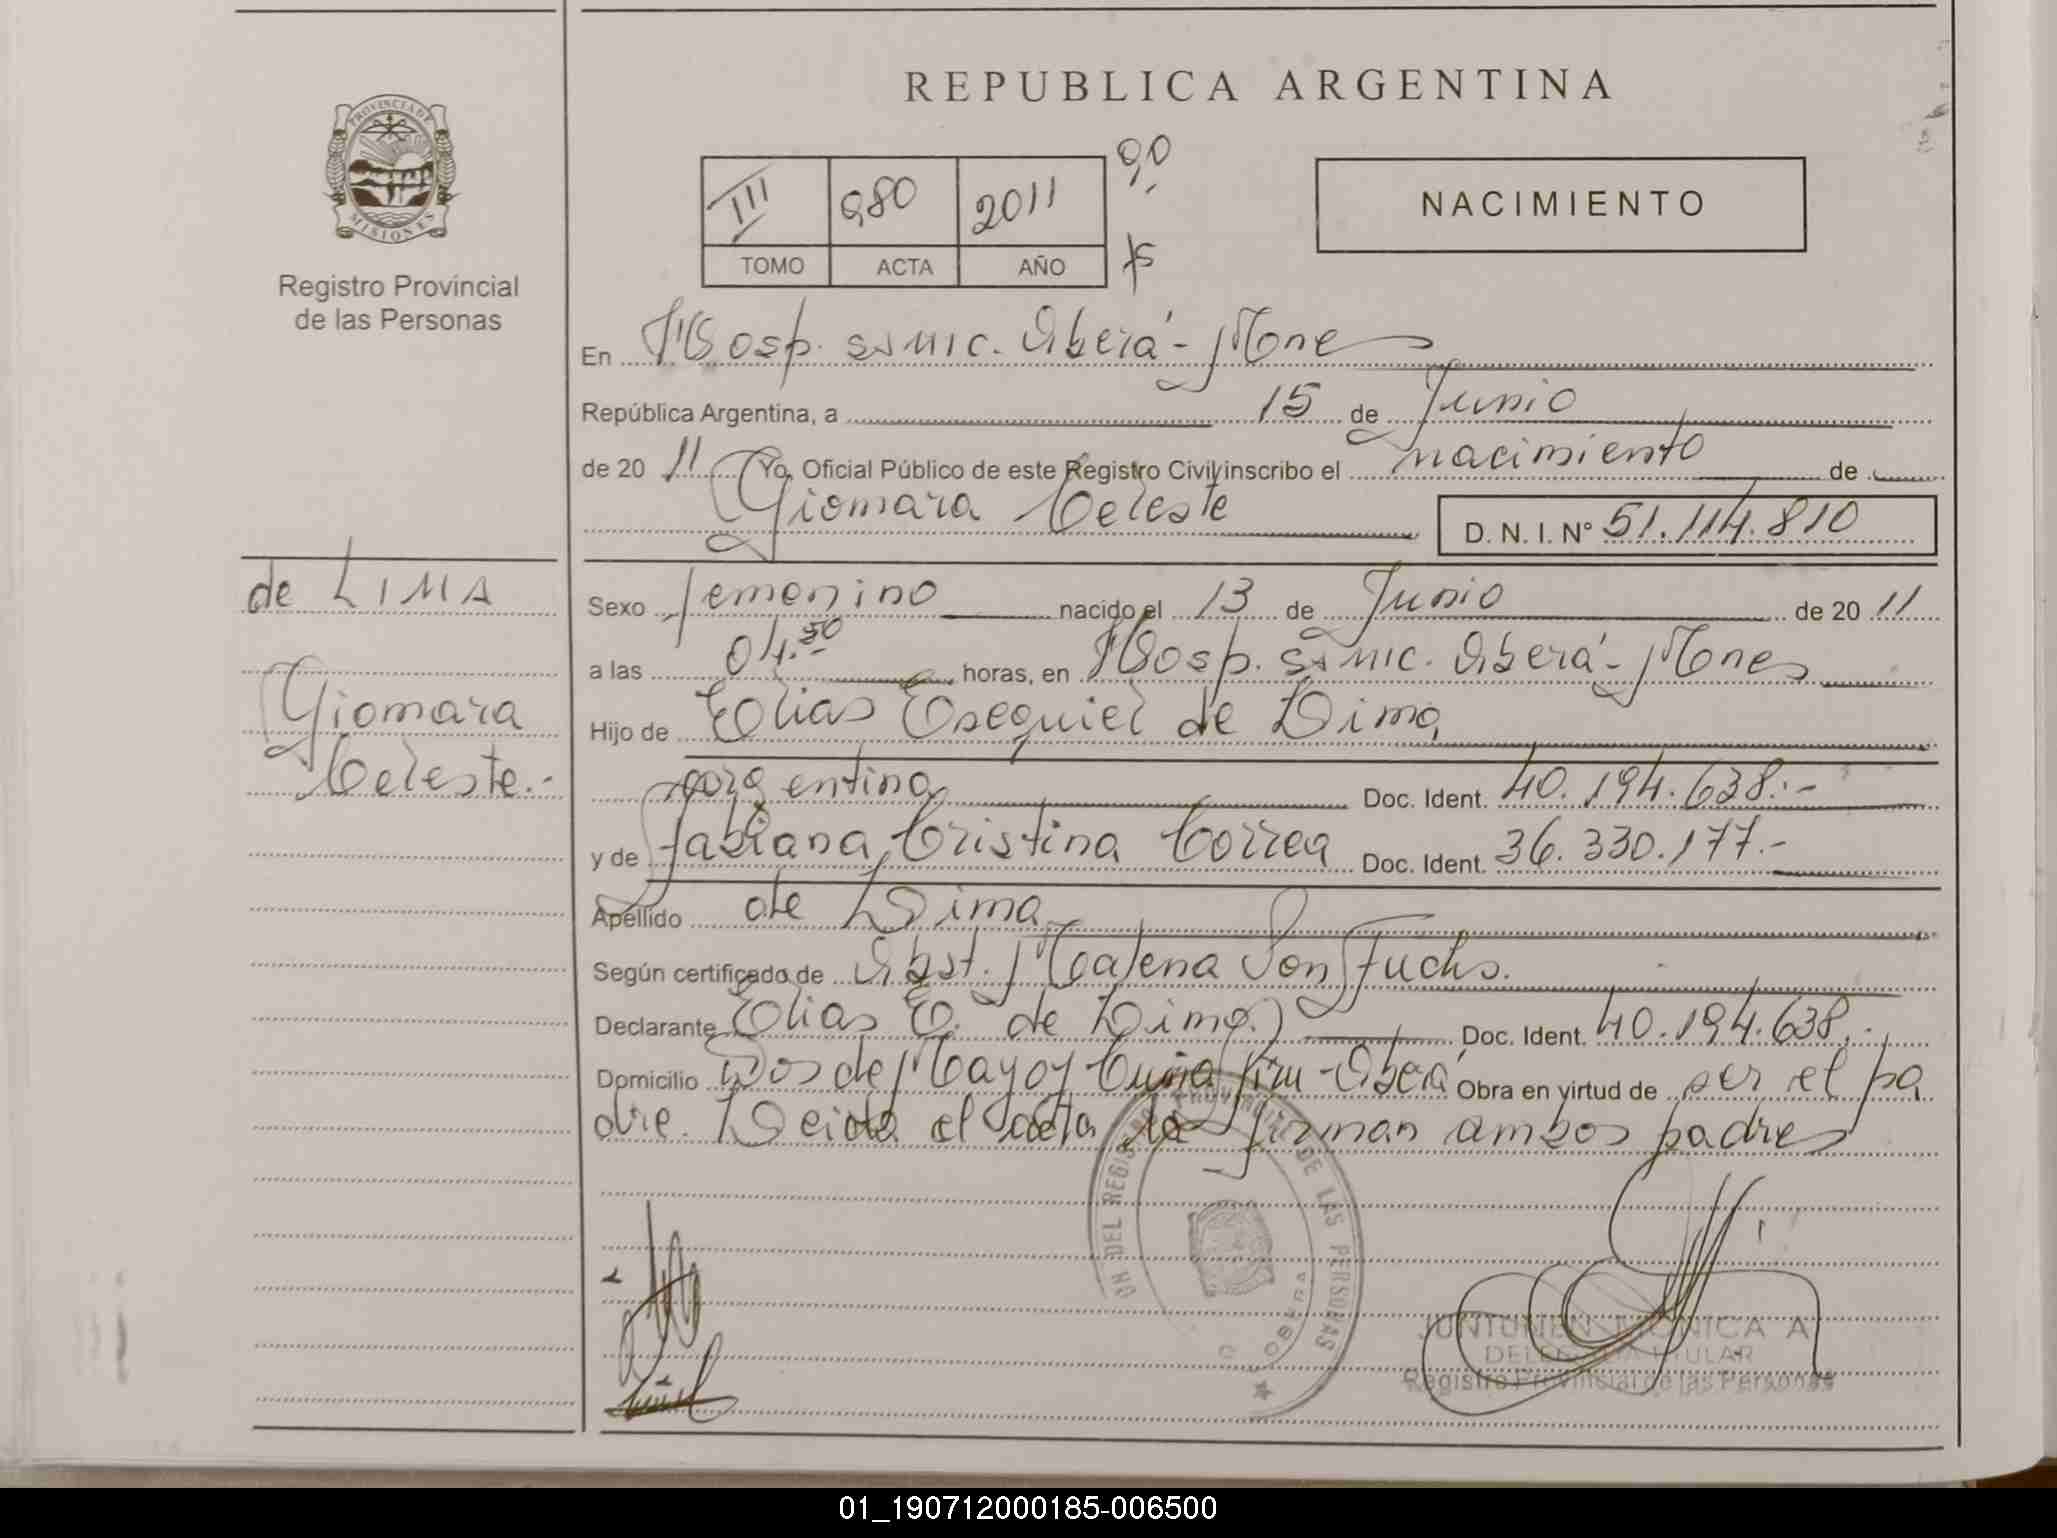 REPUBLICA ARGENTINA
PROVINCIA DE
MISIONES
Registro Provincial
de las Personas
III 980 2011
TOMO ACTA AÑO
NACIMIENTO
En Hosp. Samic. Oberá - Mnes
República Argentina, a 15 de Junio
de 20 11 Yo, Oficial Público de este Registro Civil inscribo el nacimiento de
Giomara Celeste D. N. I. N° 51.114.810
de LIMA
Giomara
Celeste.-
Sexo femenino nacido el 13 de Junio de 20 11
a las 04.50 horas, en Hosp. Samic. Oberá - Mnes
Hijo de Elias Esequiel de Lima
argentino Doc. Ident. 40.194.638.-
y de Fabiana Cristina Correa Doc. Ident. 36.330.177.-
Apellido de Lima
Según certificado de Obst. Malena Von Fuchs.
Declarante Elias E. de Lima Doc. Ident. 40.194.638.
Domicilio Dos de Mayo y Cuña Pirú - Oberá Obra en virtud de ser el pa
dre. Leida el acta la firman ambos padres
DEL REGISTRO PROVINCIAL DE LAS PERSONAS
OBERA
JUNTUNEN MONICA A
DELEGADA TITULAR
Registro Provincial de las Personas
01_190712000185-006500